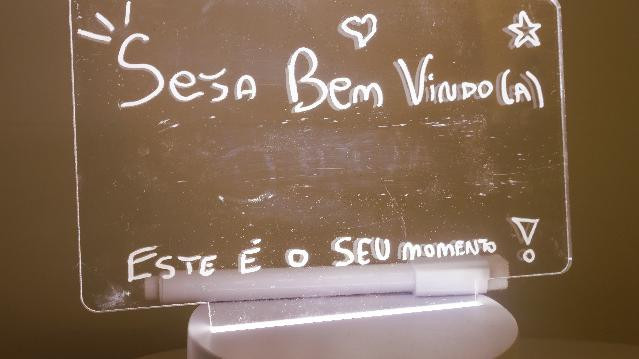 Seja Bem Vindo(a)
Este é o seu momento!